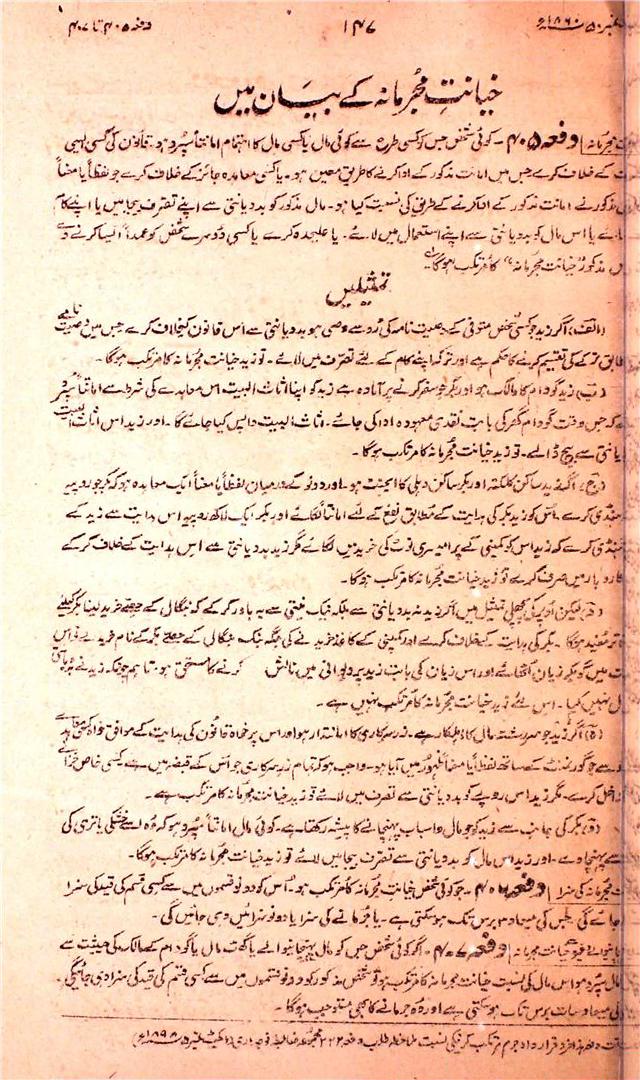 نمبر ۵۰ ۱۸۶۰ء ۱۴۷ دفعہ ۴۰۵ تا ۴۰۷
خیانتِ مجرمانہ کے بیان میں
مجرمانہ دفعہ ۴۰۵ ۔ کوئی شخص جس کو کسی طرح سے کوئی مال یا کسی مال کا اہتمام امانتاً سپرد ہو۔ قانون کی کسی ایسی
کے خلاف کرے جس میں امانت مذکور کے ادا کرنے کا طریق معین ہو۔ یا کسی معاہدہ جائز کے خلاف کرے جو لفظاً یا معناً
مذکور نے امانت مذکور کے ادا کرنے کے طریق کی نسبت کیا ہو۔ مال مذکور کو بد دیانتی سے اپنے تصرف بیجا میں یا اپنے کام
یا اس مال کو بد دیانتی سے اپنے استعمال میں لائے۔ یا علیحدہ کرے یا کسی دوسرے شخص کو عمداً ایسا کرنے دے
مذکور "خیانت مجرمانہ" کا مرتکب ہوگا۔
تمثیلیں
(الف) اگر زید جو کسی شخص متوفی کے وصیت نامہ کی رُو سے وصی ہو بد دیانتی سے اُس قانون کے خلاف کرے جس میں وصیت نامے
ترکے کی تقسیم کرنے کا حکم ہے اور ترکہ اپنے کام کے لئے تصرف میں لائے۔ تو زید خیانت مجرمانہ کا مرتکب ہوگا۔
(ب) زید گودام کا مالک ہو اور بکر جو سفر کرنے پر آمادہ ہے زید کو اپنا اثاث البیت اس معاہدے کی شرط سے امانتاً سپرد
کہ جس وقت گودام گھر کی بابت نقدی معہودہ ادا کی جائے۔ اثاث البیت واپس کیا جائے گا۔ اور زید اس اثاث البیت
سے بیچ ڈالے۔ تو زید خیانت مجرمانہ کا مرتکب ہوگا۔
(ج) اگر زید ساکن کلکتہ اور بکر ساکن دہلی کا ایجنٹ ہو۔ اور دونو کے درمیان لفظاً یا معناً ایک معاہدہ ہو کہ بکر جو روپیہ
ہنڈی کرے۔ اُس کو زید بکر کی ہدایت کے مطابق نفع کے لئے امانتاً لگائے اور بکر ایک لاکھ روپیہ اس ہدایت سے زید کے
ہنڈی کرے کہ زید اس کو کمپنی کے پرامیسری نوٹ کی خرید میں لگائے مگر زید بد دیانتی سے اس ہدایت کے خلاف کر کے
میں صرف کرے تو زید خیانت مجرمانہ کا مرتکب ہوگا۔
(د) لیکن اُوپر کی پچھلی تمثیل میں اگر زید نہ بد دیانتی سے بلکہ نیک نیتی سے یہ باور کر کے کہ بنک بنگال کے حصے خرید لینا بکر کیلئے
مفید ہوگا۔ بکر کی ہدایت کے خلاف کرے اور کمپنی کے کاغذ خریدنے کی جگہ بنک بنگال کے حصے بکر کے نام خرید لے تو اس
میں گو بکر زیان اُٹھائے اور اس زیان کی بابت زید پر دیوانی میں نالش کرنے کا مستحق ہو۔ تاہم چونکہ زید نے بد دیانتی
نہیں کیا۔ اس لئے زید خیانت مجرمانہ کا مرتکب نہیں ہے۔
(ہ) اگر زید جو سررشتہ مال کا اہلکار ہے۔ زر سرکاری کا امانتدار ہو اور اس پر خواہ قانون کی ہدایت کے موافق خواہ کسی معاہدے
سے جو گورنمنٹ کے ساتھ لفظاً یا معناً ظہور میں آیا ہو۔ واجب ہو کہ تمام زر سرکاری جو اُس کے قبضہ میں ہے کسی خاص خزانے
داخل کرے۔ مگر زید اس روپے کو بد دیانتی سے تصرف میں لائے تو زید خیانت مجرمانہ کا مرتکب ہے۔
(و) بکر کی جانب سے زید کو جو مال و اسباب پہنچانے کا پیشہ رکھتا ہے۔ کوئی مال امانتاً سپرد ہو کہ وہ اسے خشکی یا تری کی
پہنچاوے۔ اور زید اس مال کو بد دیانتی سے تصرف بیجا میں لائے تو زید خیانت مجرمانہ کا مرتکب ہوگا۔
مجرمانہ کی سزا دفعہ ۴۰۶ ۔ جو کوئی شخص خیانت مجرمانہ کا مرتکب ہو۔ اُس کو دونو قسموں میں سے کسی قسم کی قید کی سزا
جائے گی جس کی میعاد ۳ برس تک ہو سکتی ہے۔ یا جرمانے کی سزا یا دونو سزائیں دی جائیں گی۔
خیانت مجرمانہ دفعہ ۴۰۷ ۔ اگر کوئی شخص جس کو مال پہنچانیوالے یا گھات وال یا گودام کے مالک کی حیثیت سے
مال سپرد ہو اس مال کی نسبت خیانت مجرمانہ کا مرتکب ہو تو شخص مذکور کو دونو قسموں میں سے کسی قسم کی قید کی سزا دی جائیگی۔
میعاد سات برس تک ہو سکتی ہے اور وہ جرمانے کا بھی مستوجب ہوگا۔
فرد قرارداد جرم مرتکب کرنیکی نسبت ملاحظہ طلب دفعہ ۲۲۲ مجموعہ ضابطہ فوجداری (ایکٹ نمبر ۵ ۱۸۹۸ء)